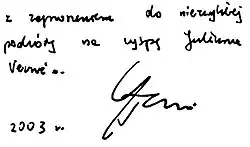 z zaproszeniem do niezwykłej
podróży na wyspę Juliusza
Verne'a.
2003 r.